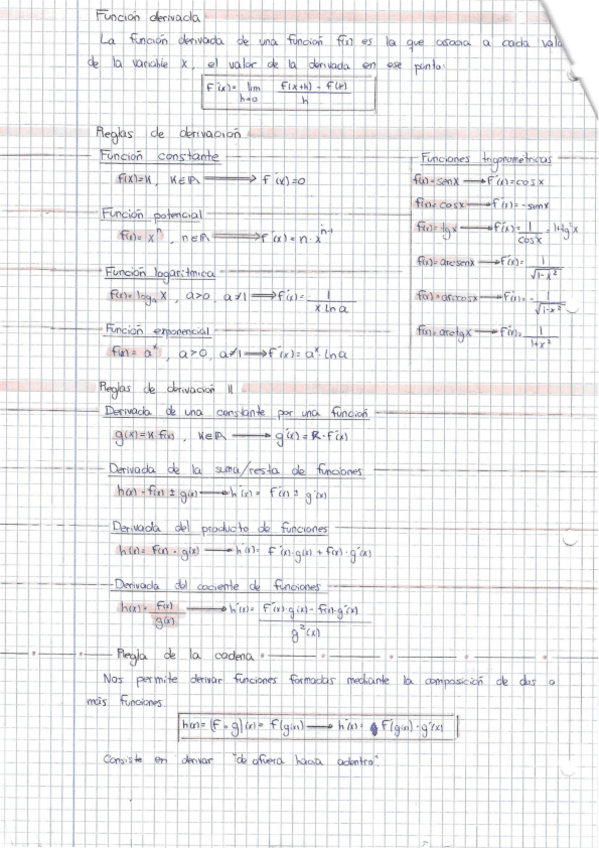 Función derivada
La función derivada de una función f(x) es la que asocia a cada valo
de la variable x, el valor de la derivada en ese punto:
f'(x)= lim h→0 f(x+h) - f(x) / h
Reglas de derivación
Función constante
f(x)=K, K∈R ⟶ f'(x)=0
Función potencial
f(x)= x^n, n∈R ⟶ f'(x)= n·x^(n-1)
Función logarítmica
f(x)=log_a x, a>0, a≠1 ⟶ f'(x)= 1 / x Ln a
Función exponencial
f(x)= a^x, a>0, a≠1 ⟶ f'(x)= a^x · Ln a
Funciones trigonométricas
f(x)=senx ⟶ f'(x)=cosx
f(x)=cosx ⟶ f'(x)=-senx
f(x)=tgx ⟶ f'(x)= 1 / cos²x = 1+tg²x
f(x)=arcsenx ⟶ f'(x)= 1 / √1-x²
f(x)=arccosx ⟶ f'(x)= - 1 / √1-x²
f(x)=arctgx ⟶ f'(x)= 1 / 1+x²
Reglas de derivación II
Derivada de una constante por una función
g(x)=K f(x), K∈R ⟶ g'(x)= K·f'(x)
Derivada de la suma/resta de funciones
h(x)= f(x) ± g(x) ⟶ h'(x)= f'(x) ± g'(x)
Derivada del producto de funciones
h(x)= f(x) · g(x) ⟶ h'(x)= f'(x)·g(x) + f(x)·g'(x)
Derivada del cociente de funciones
h(x)= f(x) / g(x) ⟶ h'(x)= f'(x)·g(x) - f(x)·g'(x) / g²(x)
Regla de la cadena
Nos permite derivar funciones formadas mediante la composición de dos o
más funciones
h(x)= (f∘g)(x)= f(g(x)) ⟶ h'(x)= f'(g(x))·g'(x)
Consiste en derivar "de afuera hacia adentro"